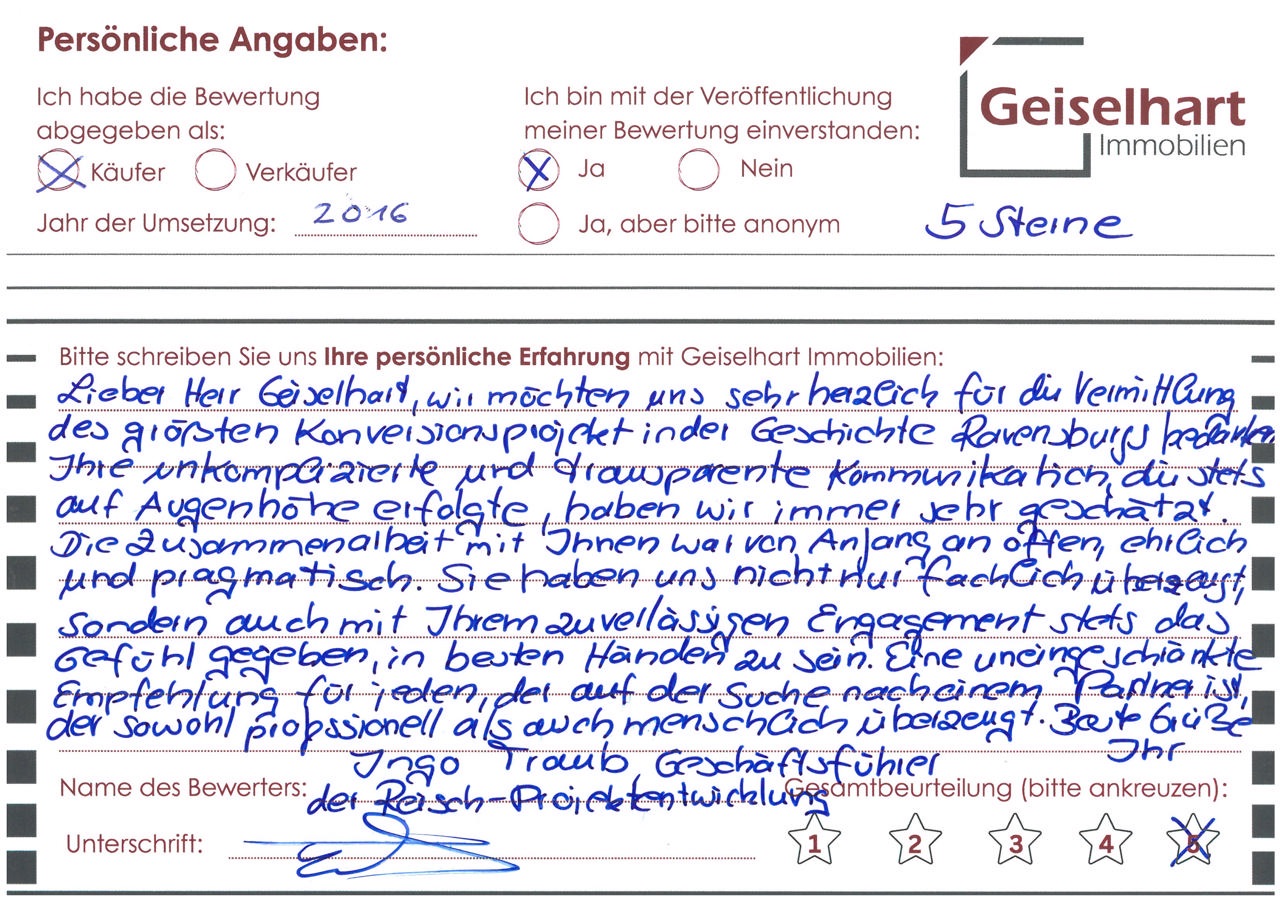 Persönliche Angaben:
Ich habe die Bewertung
abgegeben als:
Käufer Verkäufer
Jahr der Umsetzung: 2016
Ich bin mit der Veröffentlichung
meiner Bewertung einverstanden:
Ja Nein
Ja, aber bitte anonym
Geiselhart
Immobilien
5 Sterne
Bitte schreiben Sie uns Ihre persönliche Erfahrung mit Geiselhart Immobilien:
Lieber Herr Geiselhart, wir möchten uns sehr herzlich für die Vermittlung
des größten Konversionsprojekt in der Geschichte Ravensburgs bedanken.
Ihre unkomplizierte und transparente Kommunikation, die stets
auf Augenhöhe erfolgte, haben wir immer sehr geschätzt.
Die Zusammenarbeit mit Ihnen war von Anfang an offen, ehrlich
und pragmatisch. Sie haben uns nicht nur fachlich überzeugt,
sondern auch mit Ihrem zuverlässigen Engagement stets das
Gefühl gegeben, in besten Händen zu sein. Eine uneingeschränkte
Empfehlung für jeden, der auf der Suche nach einem Partner ist,
der sowohl professionell als auch menschlich überzeugt. Beste Grüße
Ihr
Ingo Traub Geschäftsführer
Name des Bewerters: der Reisch-Projektentwicklung
Gesamtbeurteilung (bitte ankreuzen):
Unterschrift:
1 2 3 4 5